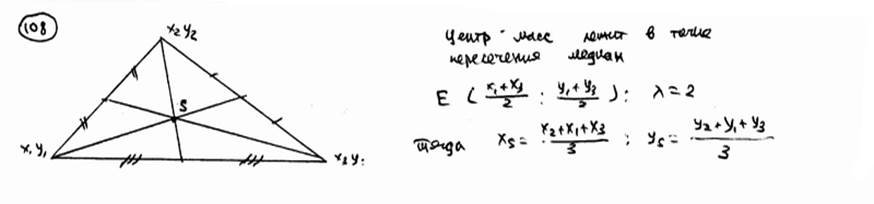 108
x₂ y₂
S
x₁ y₁
x₃ y₃
Центр масс лежит в точке
пересечения медиан
E ( (x₁+x₃)/2 ; (y₁+y₃)/2 ) : λ = 2
Тогда xₛ = (x₂+x₁+x₃)/3 ; yₛ = (y₂+y₁+y₃)/3